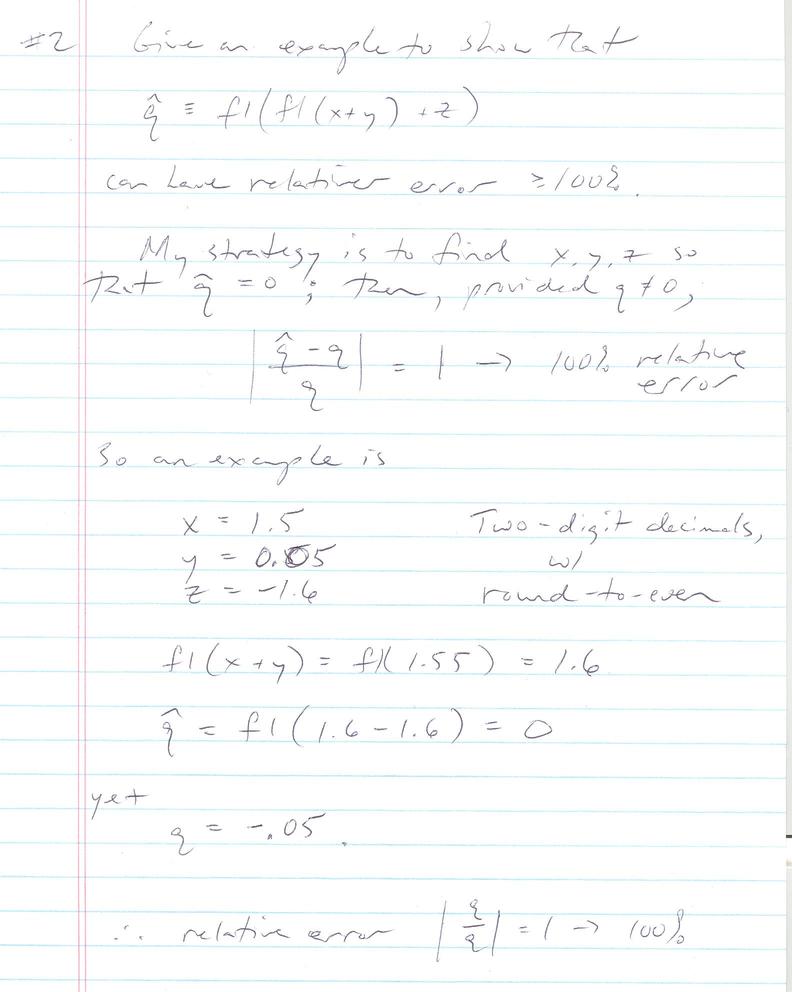 #2 Give an example to show that
q̂ ≡ fl(fl(x+y)+z)
can have relative error ≥100%.
My strategy is to find x, y, z so
that q̂ = 0; then, provided q ≠ 0,
|(q̂ - q)/q| = 1 → 100% relative
error
So an example is
x = 1.5 Two-digit decimals,
y = 0.05 w/
z = -1.6 round-to-even
fl(x+y) = fl(1.55) = 1.6
q̂ = fl(1.6-1.6) = 0
yet
q = -.05.
∴ relative error |q/q| = 1 → 100%